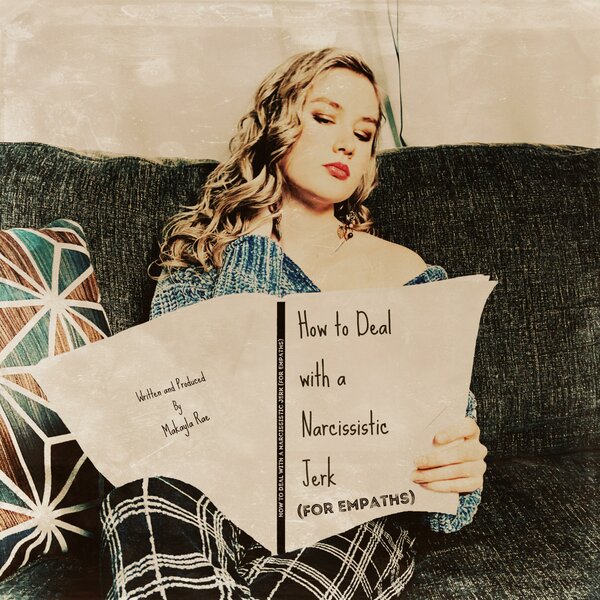 Written and Produced
By
Makayla Rae
HOW TO DEAL WITH A NARCISSISTIC JERK (FOR EMPATHS)
How to Deal
with a
Narcissistic
Jerk
(FOR EMPATHS)